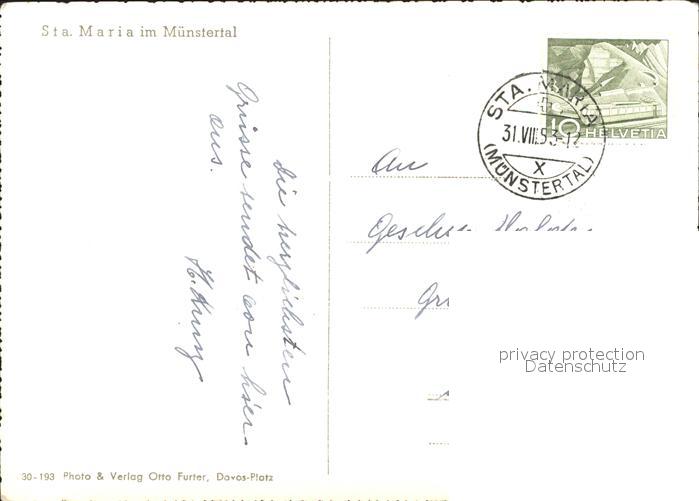 Sta. Maria im Münstertal
Die herzlichsten
Grüsse sendet von hier
aus.
STA. MARIA
31.VIII.53-12
X
(MÜNSTERTAL)
10 HELVETIA
An
privacy protection
Datenschutz
30-193 Photo & Verlag Otto Furter, Davos-Platz